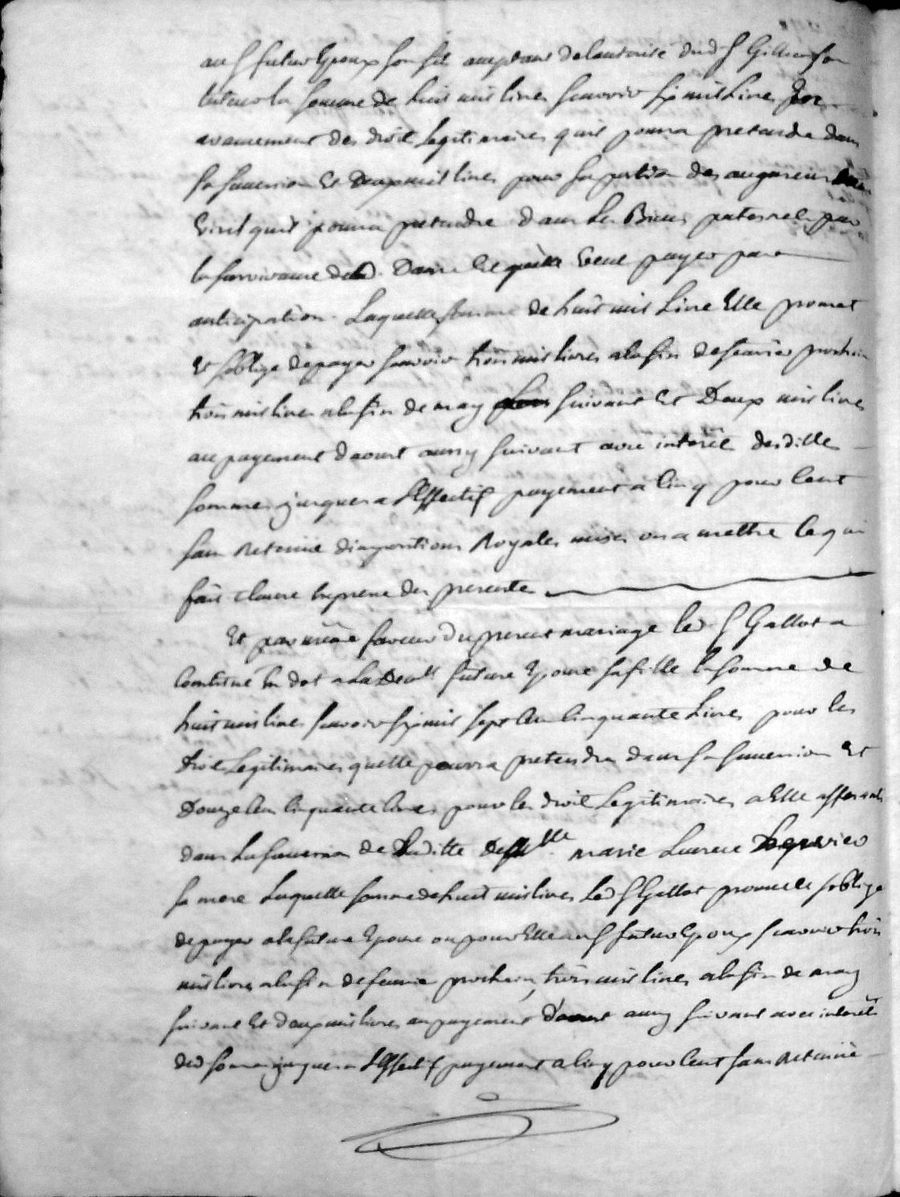 au S futur Epoux son fils acceptant de lautorité dud S
tuteur la somme de huit mil livres scavoir six mil livres
avancement des droits legitimaires quil pourra pretendre dans
sa succession Et Deux mil livres pour sa portion des augment
Et quil pourra pretendre dans les Biens paternels par
la survivance de lad. Dame Et quelle veut payer par
anticipation. Laquelle somme de huit mil Livres Elle promet
Et soblige de payer scavoir trois mil livres a la fin de fevrier prochain
trois mil livres a la fin de may suivant Et Deux mil livres
au payement daoust aussy suivant avec interets desdittes
sommes jusques a lEffectif payement a cinq pour Cent
sans Retenue dimpositions Royales mises ou a mettre ce qui
fait clause expresse des presentes
Et par même faveur du present mariage led S Gallot a
Constitué En dot a la Demlle future Epouse sa fille la somme de
huit mil livres scavoir six mil sept Cent Cinquante Livres pour les
droits Legitimaires quelle pourra pretendre dans sa succession Et
Douze Cent Cinquante livres pour les droits Legitimaires a Elle afferants
dans la succession de laditte marie Lucrece
sa mere Laquelle somme de huit mil livres led S Gallot promet Et soblige
de payer a la future Epouse ou pour Elle au S futur Epoux scavoir trois
mil livres a la fin de fevrier prochain, trois mil livres a la fin de may
suivant Et deux mil livres au payement daoust aussy suivant avec interets
desd sommes jusques a lEffectif payement a cinq pour Cent sans Retenue